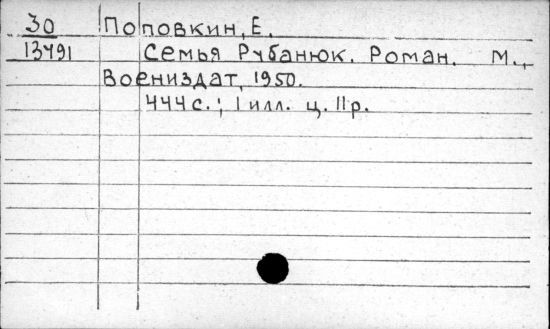 30 Поповкин, Е.
13491 Семья Рубанюк. Роман. М.,
Воениздат, 1950.
444 с.; 1 илл. ц. 11 р.